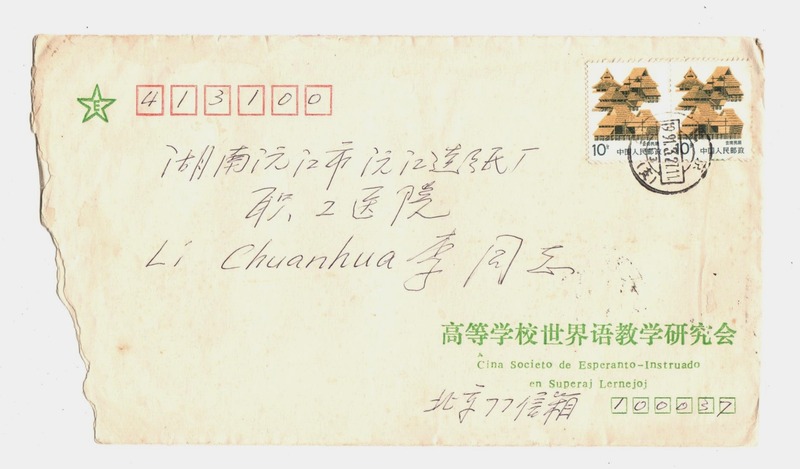 E
413100
10分 中国人民邮政 10分 中国人民邮政
湖南沅江市沅江造纸厂
职工医院
Li Chuanhua 李同志
高等学校世界语教学研究会
Ĉina Societo de Esperanto-Instruado
en Superaj Lernejoj
北京77信箱 100037